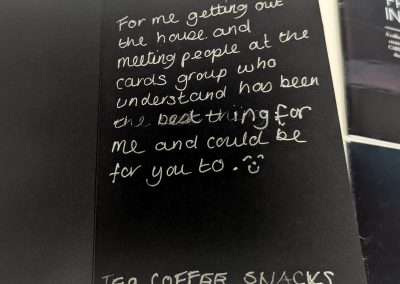 For me getting out
the house. and
meeting people at the
cards group who
understand has been
the best thing for
me and could be
for you to. :)
TEA COFFEE SNACKS